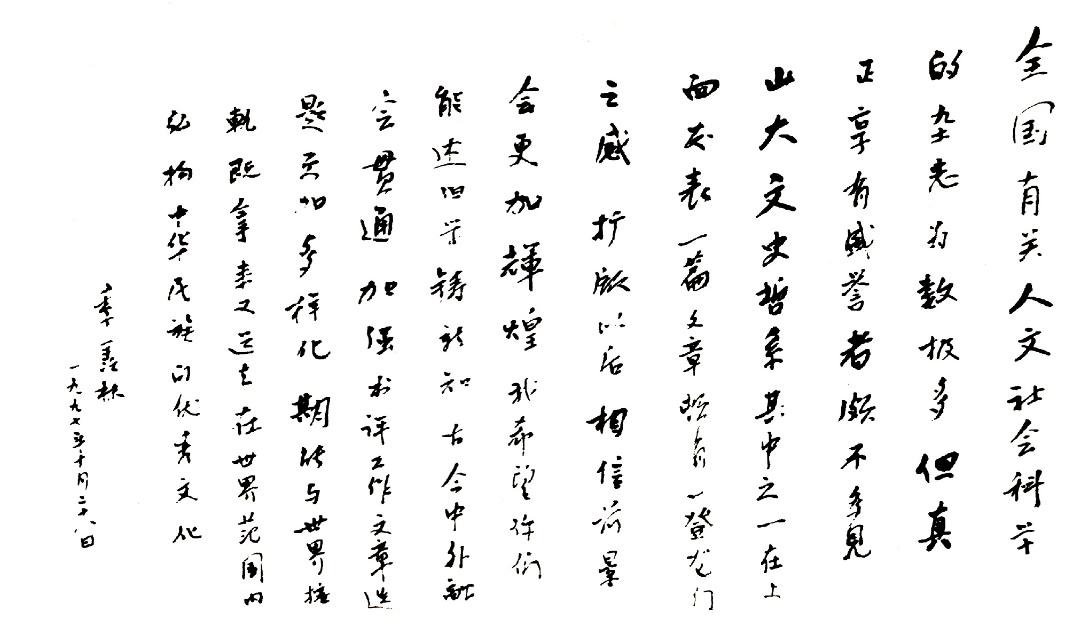 全国有关人文社会科学
的杂志为数极多但真
正享有盛誉者颇不多见
山大文史哲系其中之一在上
面发表一篇文章有一登龙门
之感 扩版以后相信前景
会更加輝煌我希望你们
能述旧学铸新知古今中外融
会贯通 加强书评工作文章选
题加多样化 期能与世界接
轨既拿来又送去在世界范围内
弘扬中华民族的优秀文化
季羡林
一九九七年十月二十八日